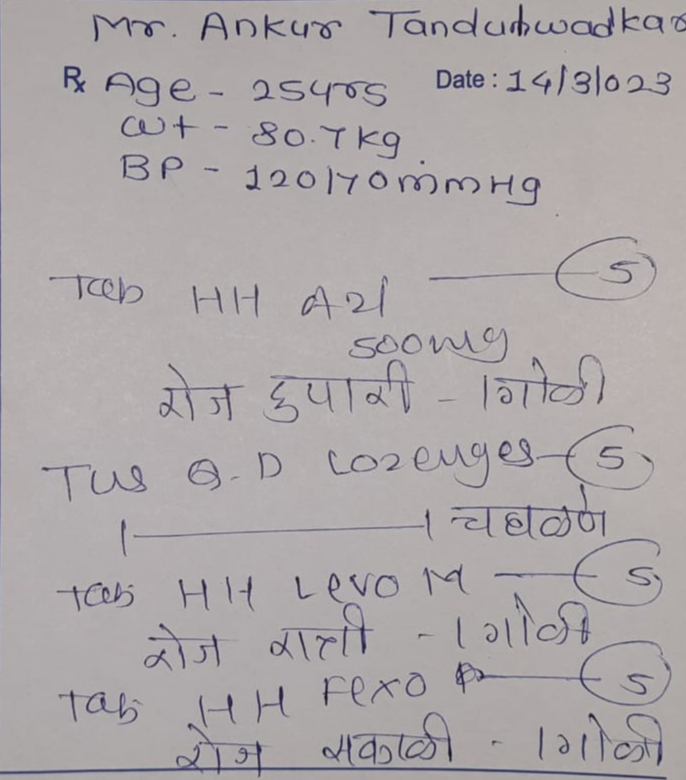 Mr. Ankur Tandulwadkar
Rx Age - 25yrs Date : 14/3/023
Wt - 80.7kg
BP - 120/70mmHg
Tab HH Azi — 5
500mg
रोज दुपारी - 1 गोळी
TUS Q-D Lozenges - 5
1 — 1 चघळणे
Tab HH Levo M — 5
रोज रात्री - 1 गोळी
Tab HH Fexo — 5
रोज सकाळी - 1 गोळी